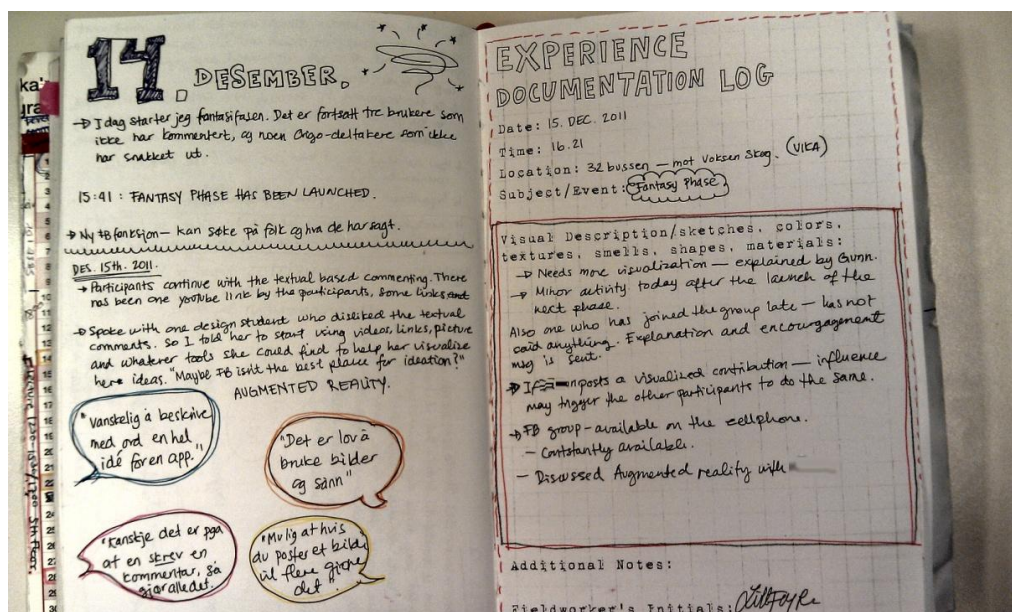 14. DESEMBER.
→ I dag starter jeg fantasifasen. Det er fortsatt tre brukere som
ikke har kommentert, og noen Origo-deltakere som ikke
har snakket ut.
15:41 : FANTASY PHASE HAS BEEN LAUNCHED.
→ Ny FB fonksjon — kan søke på folk og hva de har sagt.
DES. 15th. 2011.
→ Participants continue with the textual based commenting. There
has been one youtube link by the participants, some links
→ Spoke with one design student who disliked the textual
comments. So I told her to start using videos, links, picture
and whatever tools she could find to help her visualize
here ideas. "Maybe FB isn't the best place for ideation?"
AUGMENTED REALITY.
"Vanskelig å beskrive
med ord en hel
idé for en app."
"Det er lov å
bruke bilder
og sånn"
"Kanskje det er pga
at en skrev en
kommentar, så
gjør alle det.
"Mulig at hvis
du poster et bilde
vil flere gjøre
det"
EXPERIENCE
DOCUMENTATION LOG
Date: 15. DEC. 2011
Time: 16.21
Location: 32 bussen — mot Voksen Skog. (VIKA)
Subject/Event: Fantasy Phase
Visual Description/sketches, colors,
textures, smells, shapes, materials:
→ Needs more visualization — explained by Gunn.
→ Minor activity today after the launch of the
next phase.
Also one who has joined the group late — has not
said anything. Explanation and encouragement
msg is sent.
→ If posts a visualized contribution — influence
may trigger the other participants to do the same.
→ FB group - available on the cellphone.
- Contstantly available.
- Discussed Augmented reality with
Additional Notes:
Fieldworker's Initials: